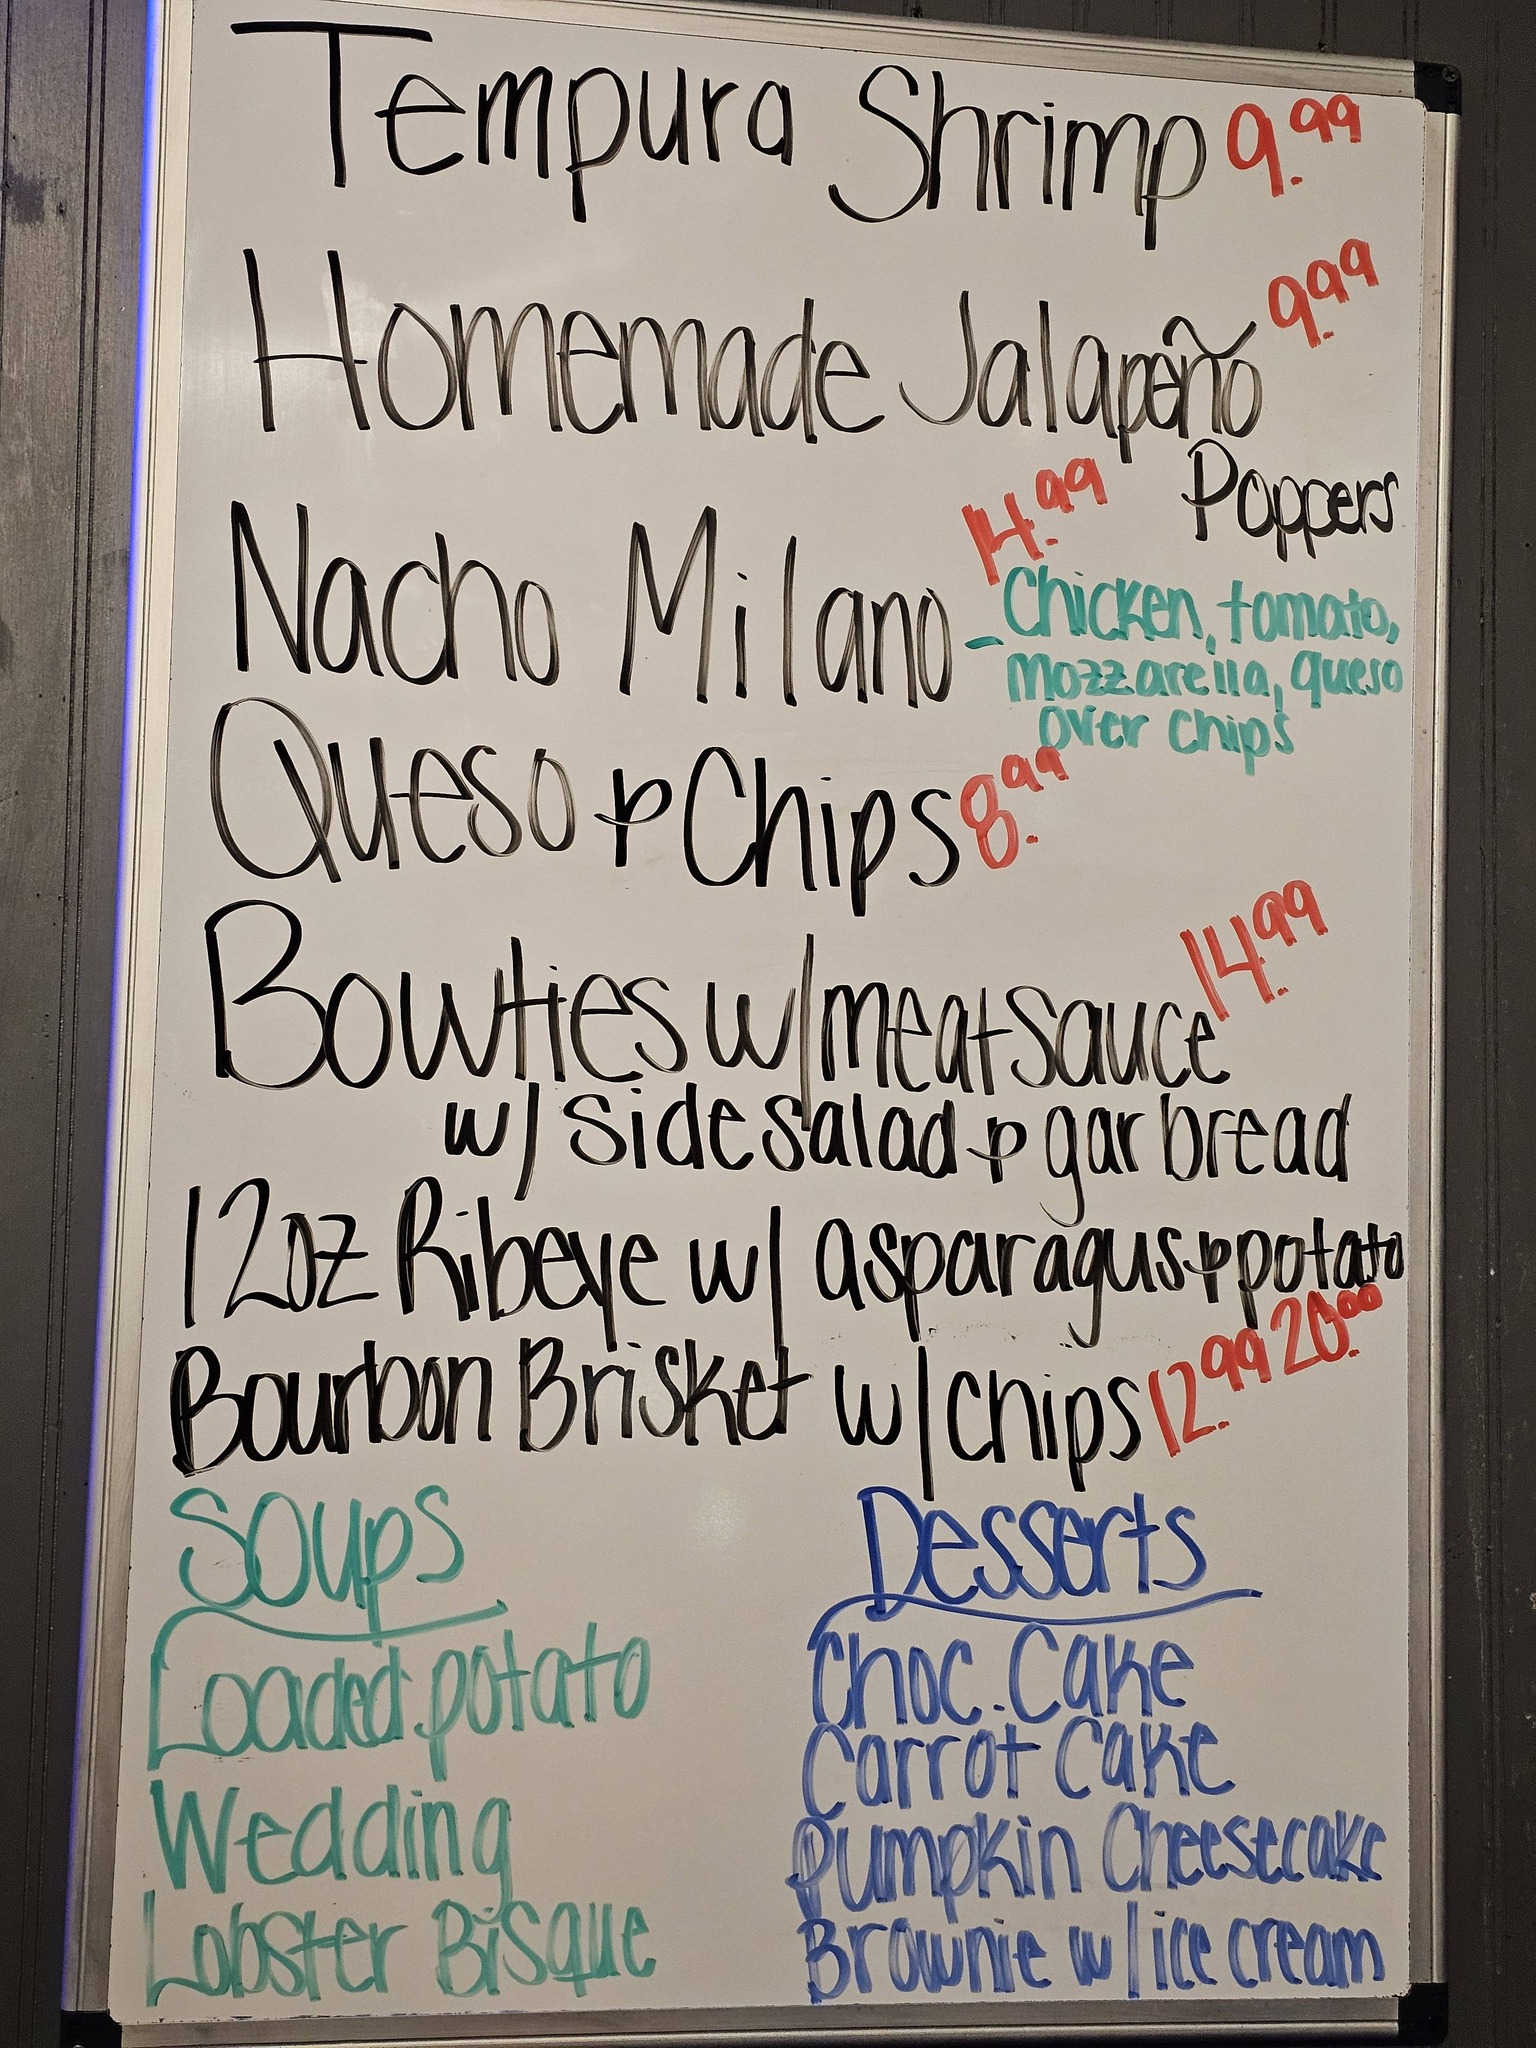 Tempura Shrimp 9.99
Homemade Jalapeño 9.99
Poppers
Nacho Milano 14.99
- Chicken, tomato,
mozzarella, queso
over chips
Queso & Chips 8.99
Bowties w/meat sauce 14.99
w/ side salad & gar bread
12oz Ribeye w/ asparagus & potato
20.00
Bourbon Brisket w/chips 12.99
Soups
Loaded potato
Wedding
Lobster Bisque
Desserts
Choc. Cake
Carrot Cake
Pumpkin Cheesecake
Brownie w/ice cream